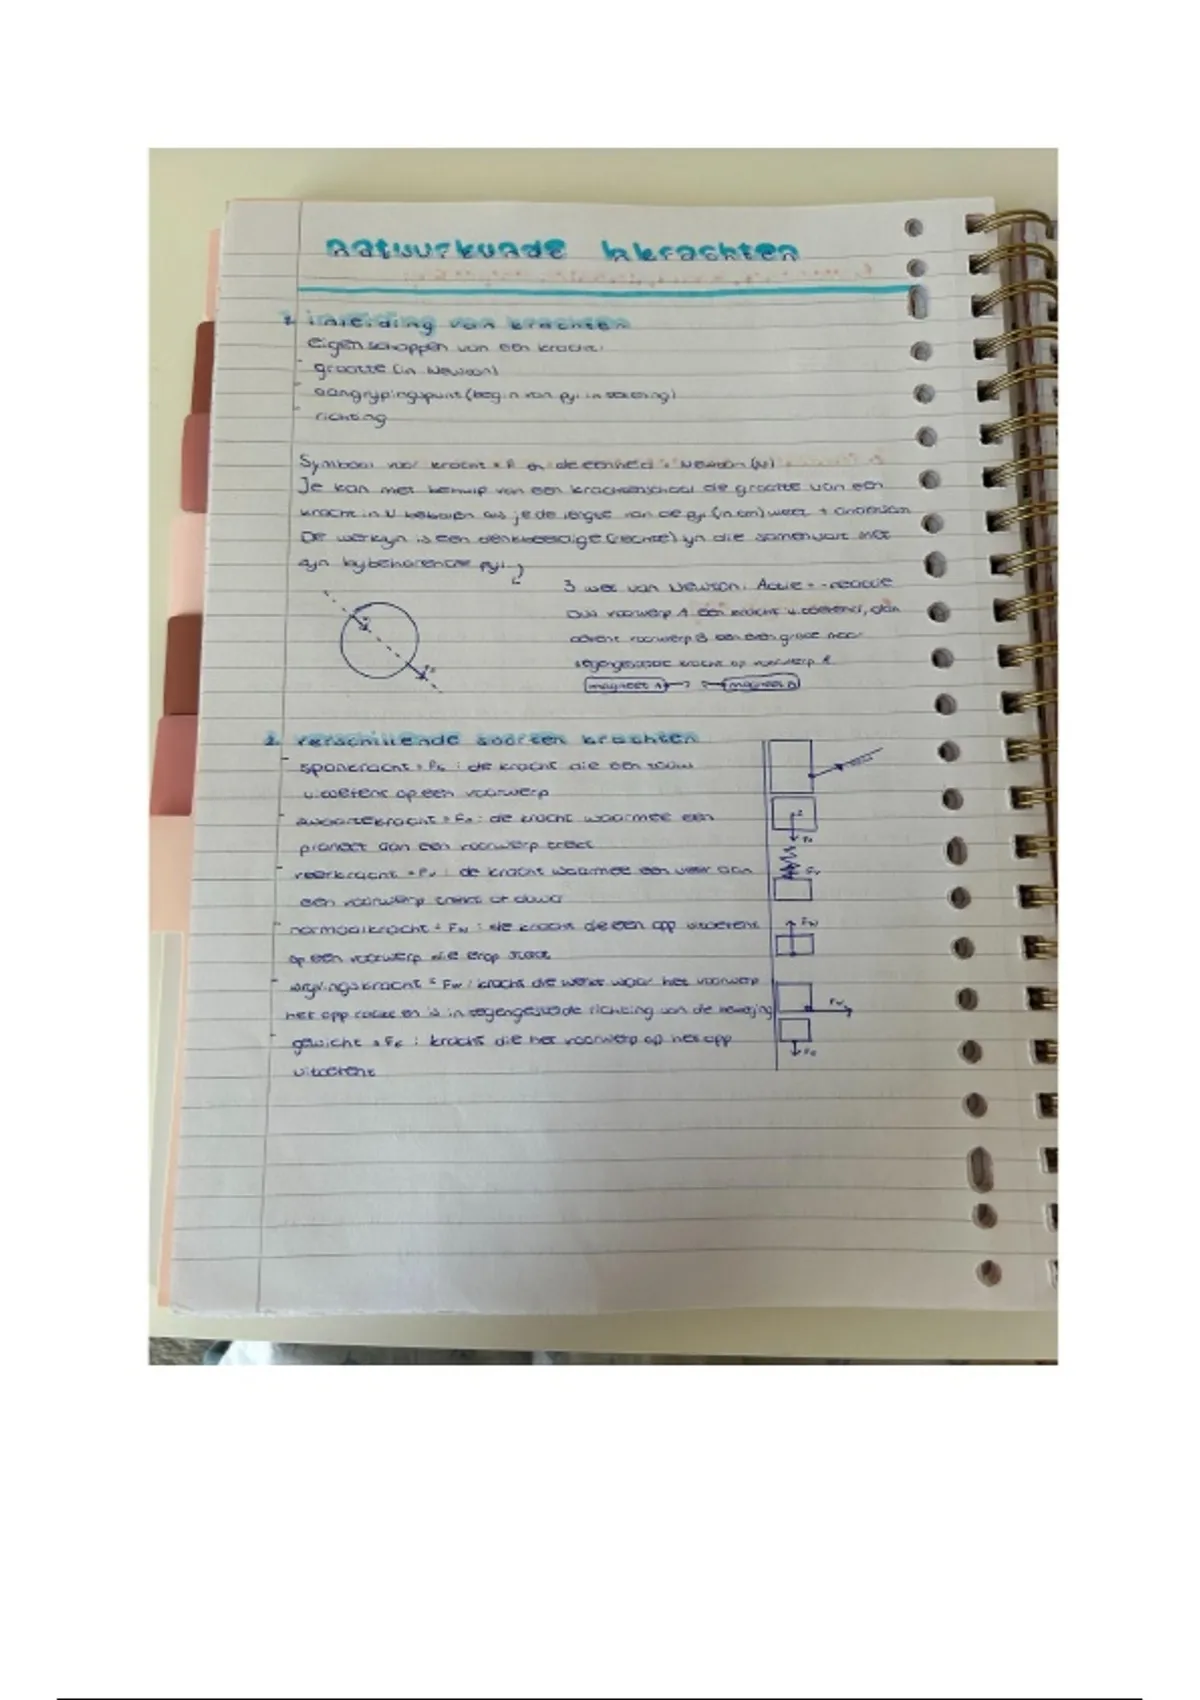 natuurkunde krachten
1. inleiding van krachten
eigenschappen van een kracht:
- grootte (in Newton)
- aangrijpingspunt (begin van pijl in tekening)
- richting
Symbool voor kracht = F en de eenheid = Newton (N)
Je kan met behulp van een krachtenschaal de grootte van een
kracht in N bepalen als je de lengte van de pijl (in cm) weet + andersom
De werklijn is een denkbeeldige (rechte) lijn die samenvalt met
zijn bijbehorende pijl.
3 wet van Newton: Actie = -reactie
Als voorwerp A een kracht uitoefend, dan
oefent voorwerp B een even grote maar
tegengestelde kracht op voorwerp A
magneet A magneet B
2. verschillende soorten krachten
- spankracht = Fs : de kracht die een touw
uitoefent op een voorwerp
- zwaartekracht = Fz : de kracht waarmee een
planeet aan een voorwerp trekt
- veerkracht = Fv : de kracht waarmee een veer aan
een voorwerp trekt of duwt
- normaalkracht = FN : de kracht die een opp uitoefent
op een voorwerp die erop staat
- wrijvingskracht = Fw : kracht die werkt waar het voorwerp
het opp raakt en is in tegengestelde richting van de beweging
- gewicht = FG : kracht die het voorwerp op het opp
uitoefent